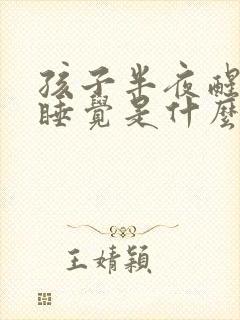 孩子半夜醒
睡覺是什麼
王婧穎